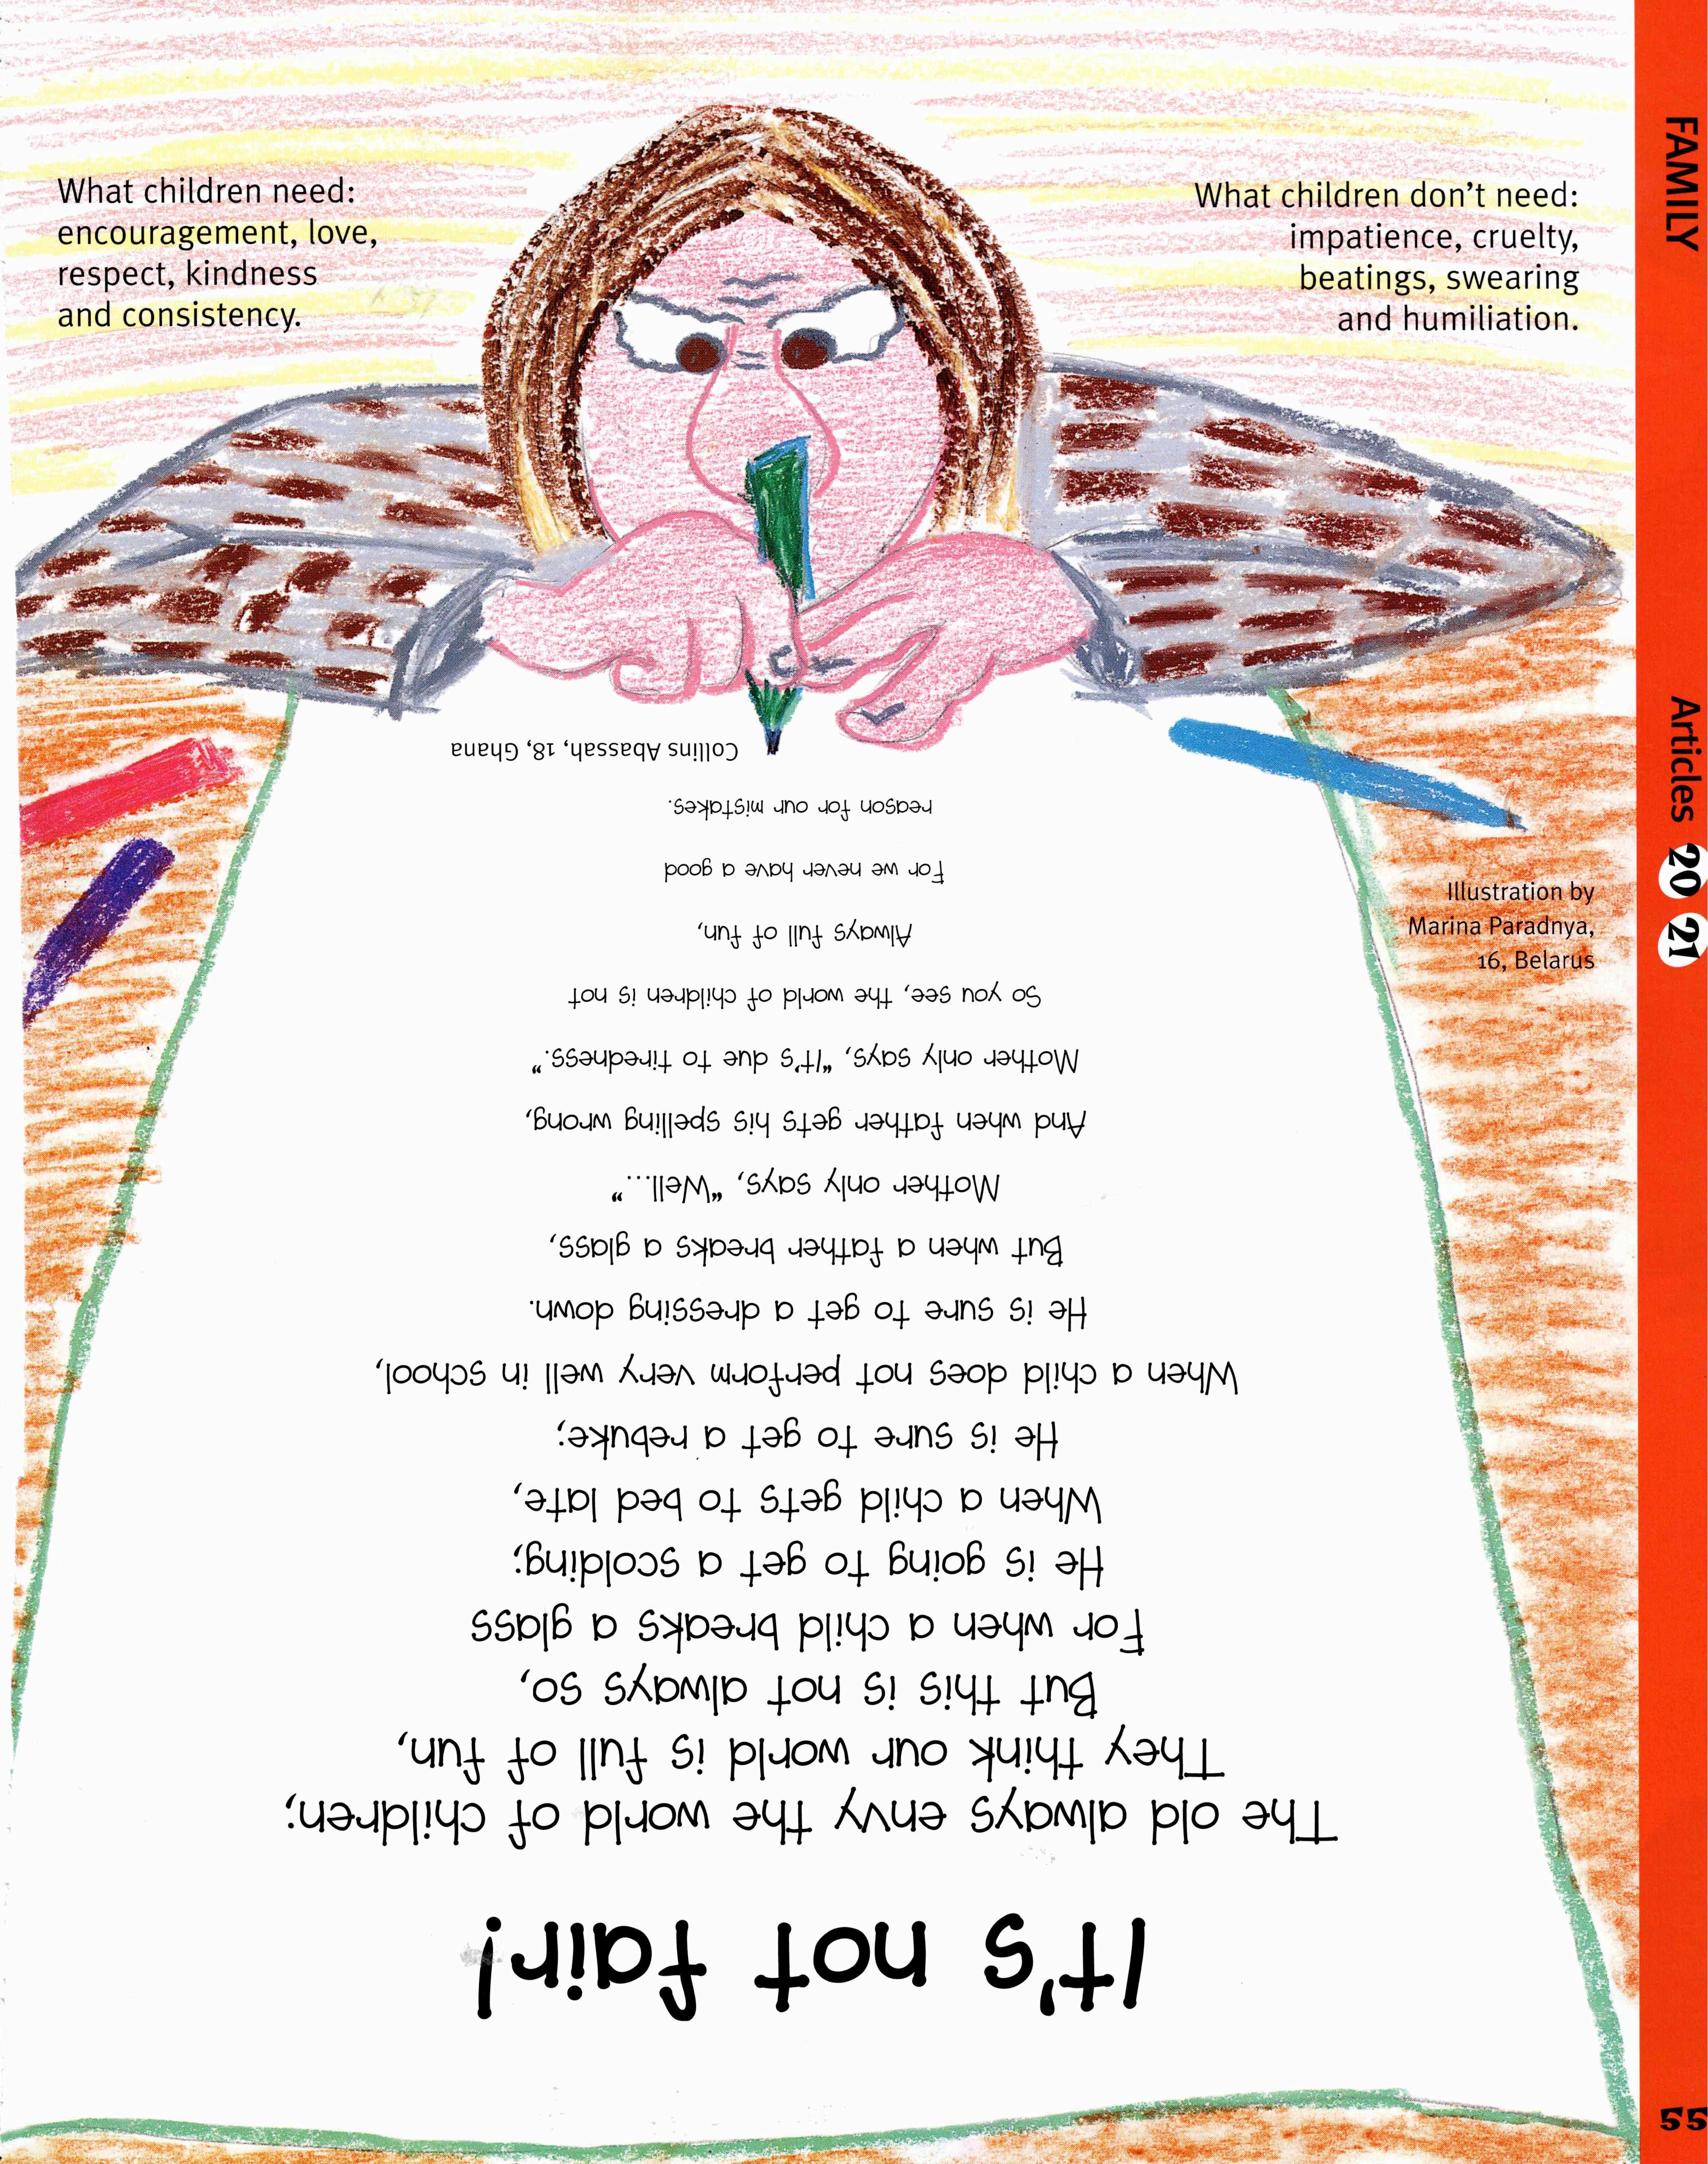 What children need:
encouragement, love,
respect, kindness
and consistency.
What children don't need:
impatience, cruelty,
beatings, swearing
and humiliation.
FAMILY
Articles 20 21
Illustration by
Marina Paradnya,
16, Belarus
It's not fair!
The old always envy the world of children;
They think our world is full of fun,
But this is not always so,
For when a child breaks a glass
He is going to get a scolding;
When a child gets to bed late,
He is sure to get a rebuke;
When a child does not perform very well in school,
He is sure to get a dressing down.
But when a father breaks a glass,
Mother only says, "Well..."
And when father gets his spelling wrong,
Mother only says, "It's due to tiredness."
So you see, the world of children is not
Always full of fun,
For we never have a good
reason for our mistakes.
Collins Abassah, 18, Ghana
55